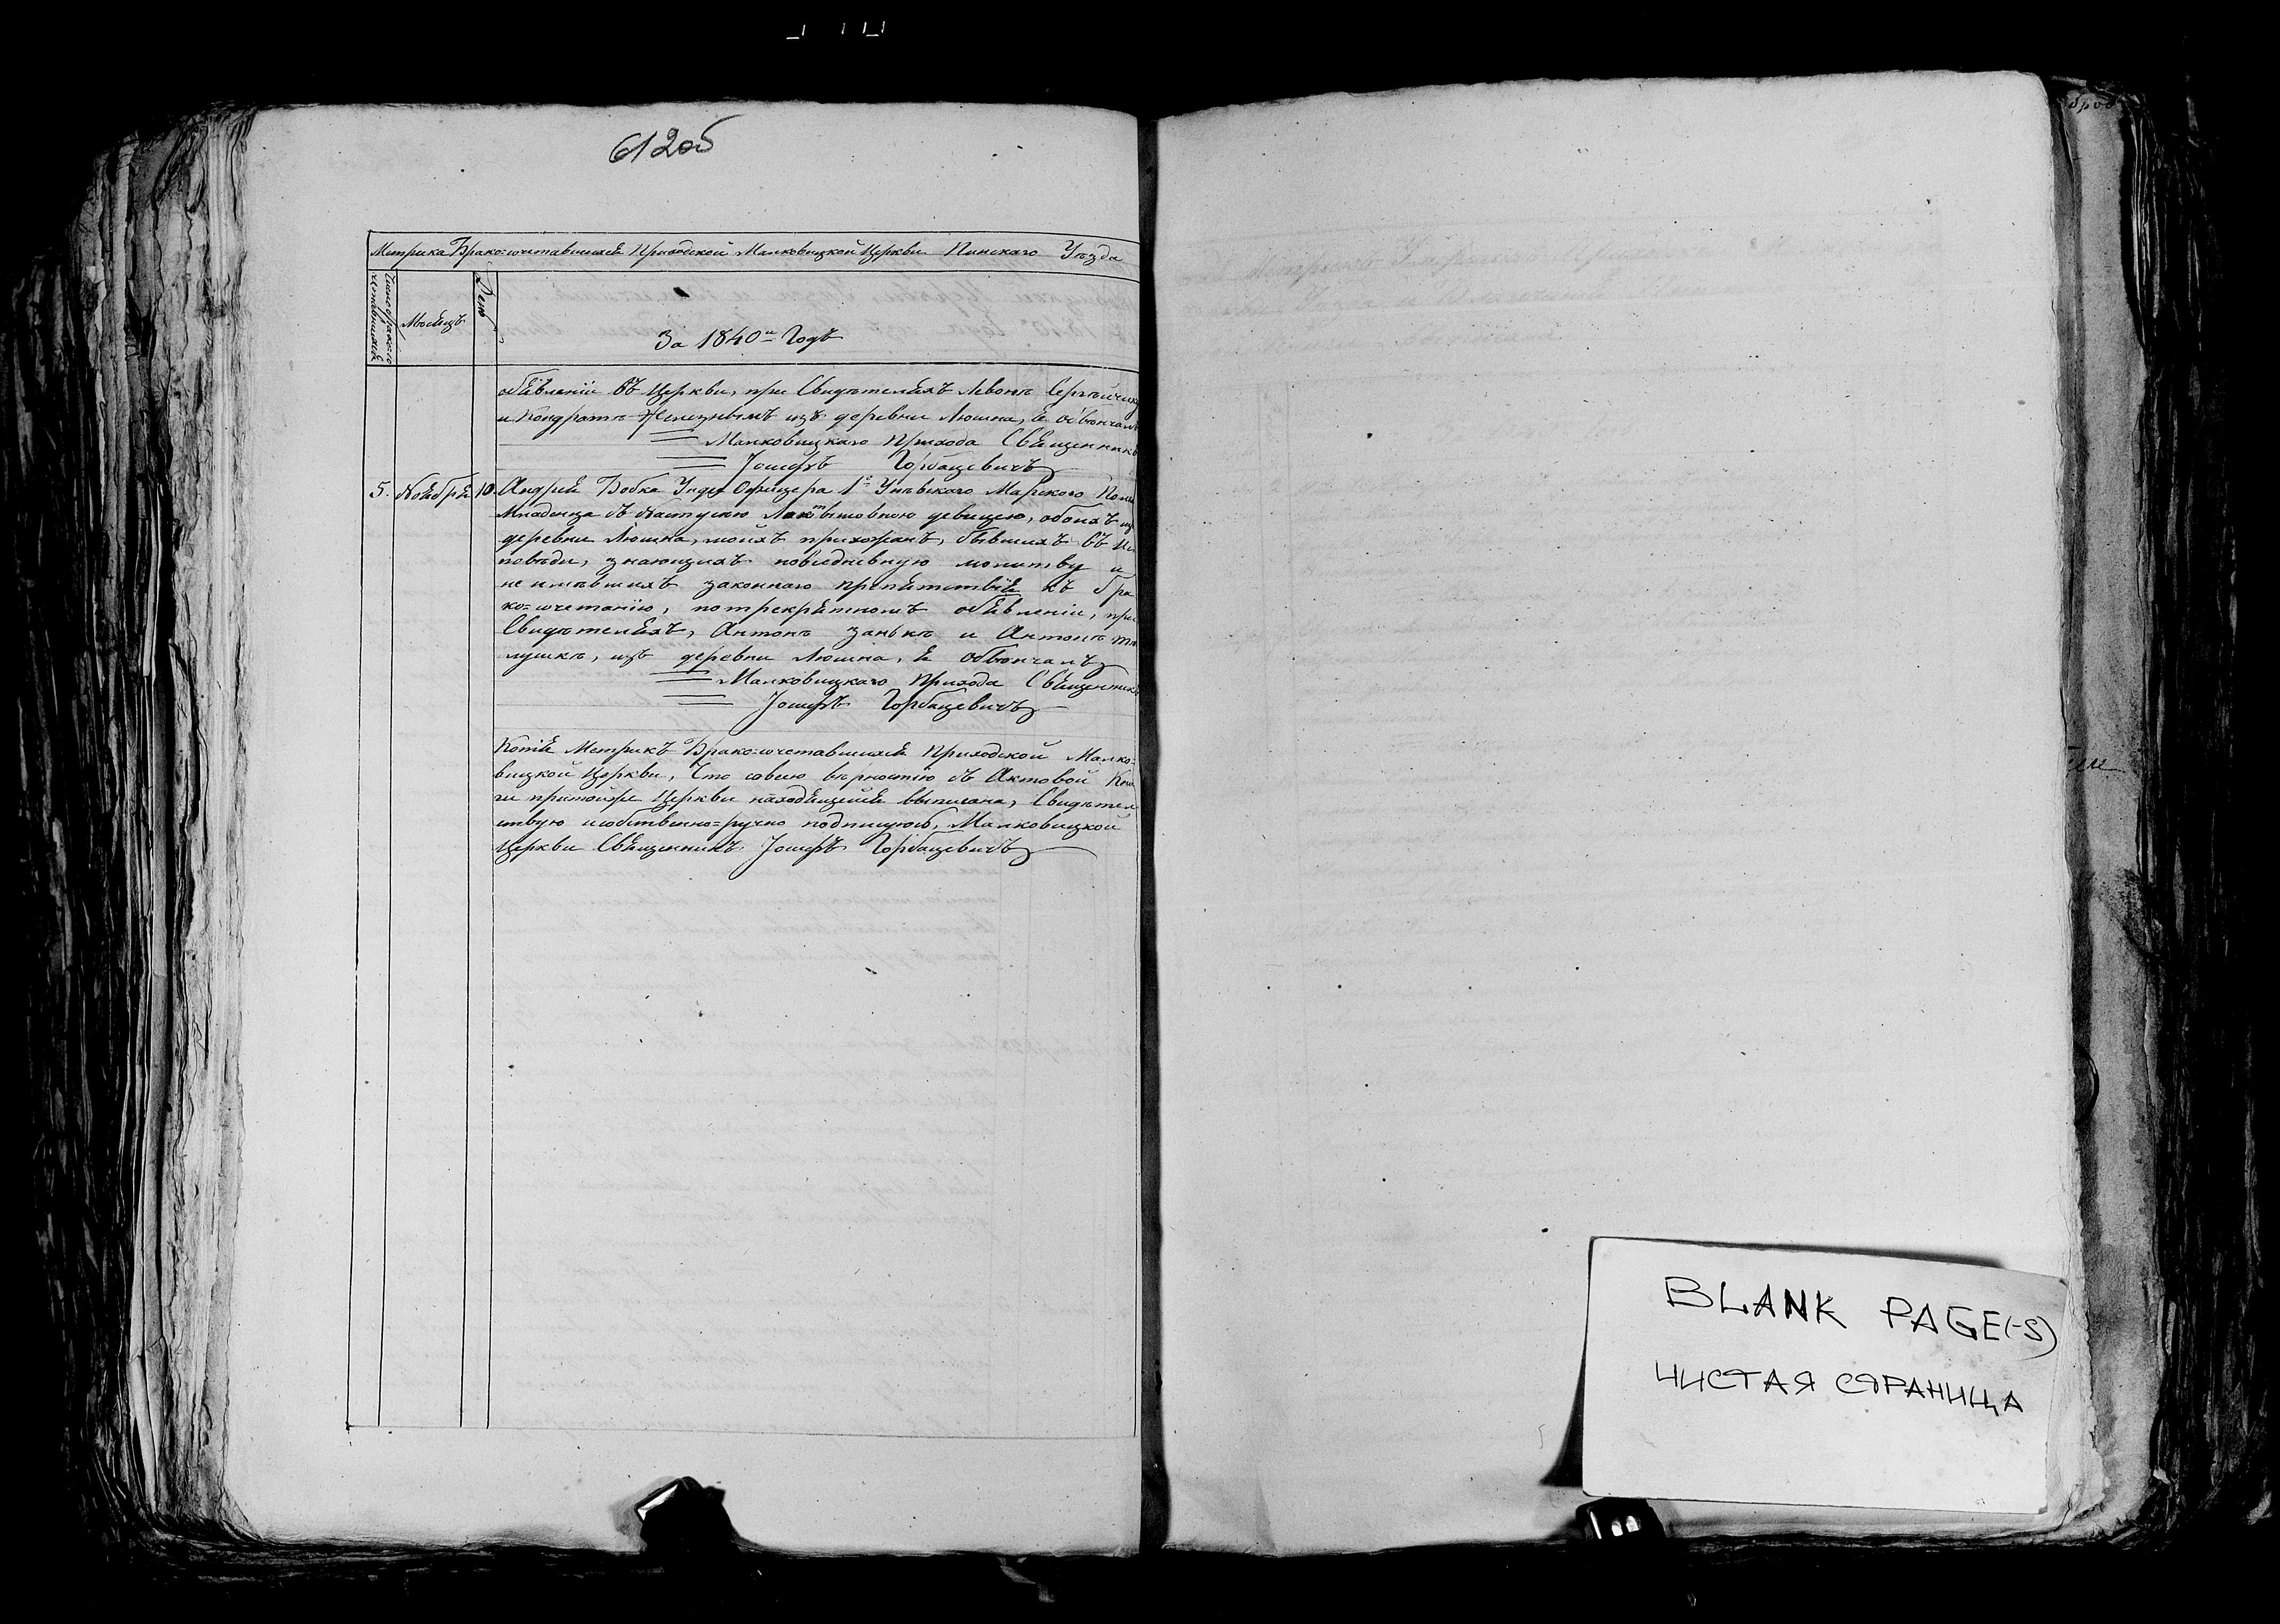 612об
Метрика Брако=сочетавшихся Приходской Малковицкой Церкви Пинскаго Уѣзда
Число брако=со
четавшихся
Мѣсяцъ
День
За 1840й Годъ
объявленіи въ Церкви, при Свидѣтеляхъ Левонѣ
и Кондратѣ изъ деревни Люшна, я обвѣнчалъ
Малковицкаго Прихода Священникъ
Іосифъ Горбацевичъ
5. Ноября 10. Андрей Бобка Ундеръ Офицера 1го Марскаго
Младенца съ Настусею девицею, обоихъ изъ
деревни Люшна, моихъ прихожанъ, бывшихъ въ Ис
повѣди, знающихъ повседневную молитву и
не имѣвшихъ законнаго препятствія къ бра
ко=сочетанію, потрекрятномъ объявленіи, при
Свидѣтеляхъ, Антонѣ Занькѣ и Антонѣ
лушкѣ, изъ деревни Люшна, я обвѣнчалъ
Малковицкаго Прихода Священникъ
Іосифъ Горбацевичъ
Копія Метрикъ Брако=сочетавшихся Приходской Малко=
вицкой Церкви, Что совсею вѣрностію съ Актовой Кни
ги притойже Церкви находящейся выписана, Свидѣтел
ствую исобственно=ручно подписуюсь, Малковицкой
Церкви Священникъ Іосифъ Горбацевичъ
BLANK PAGE(-S)
ЧИСТАЯ СТРАНИЦА